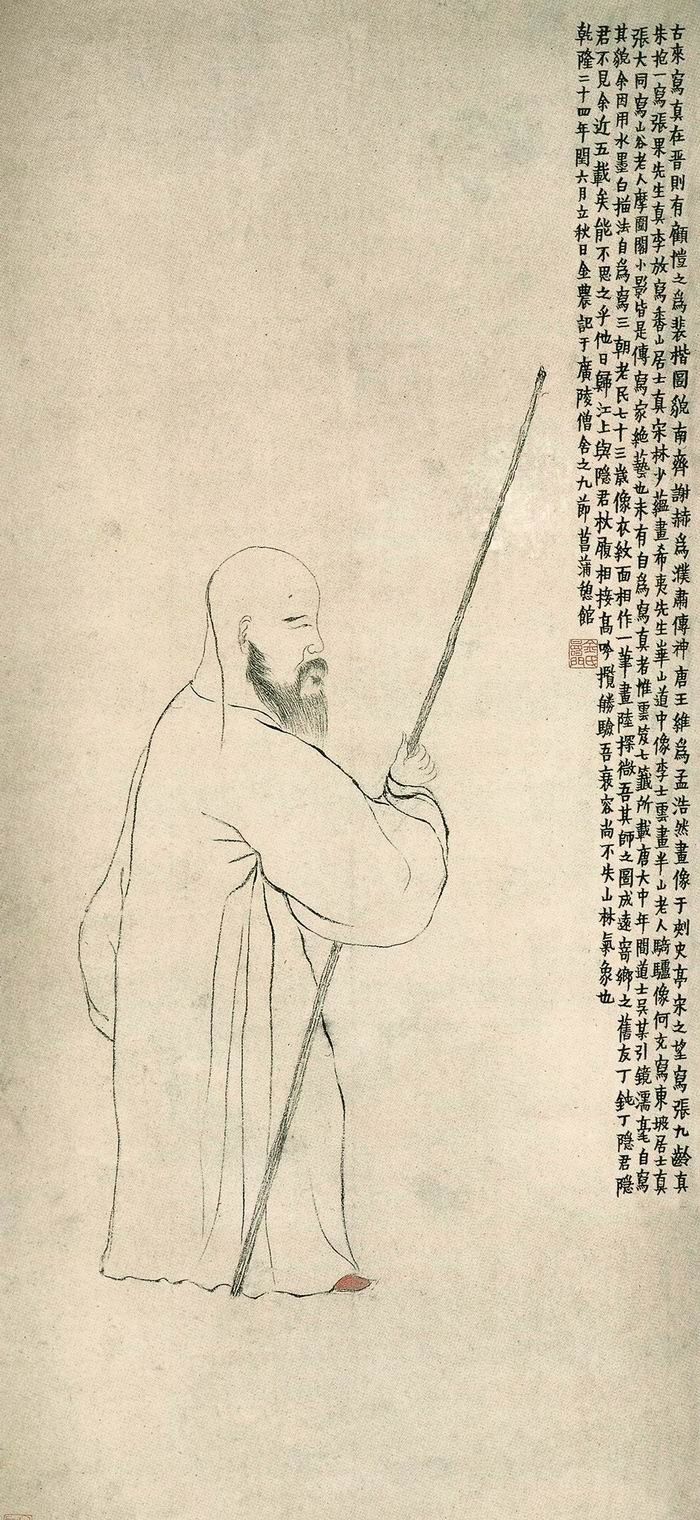 古來寫真在晉則有顧愷之為裴楷圖貌南齊謝赫為濮肅傳神唐王維為孟浩然畫像于刺史亭宋之望寫張九齡真
朱抱一寫張果先生真李放寫香山居士真宋林少蘊畫希夷先生華山道中像李士雲畫半山老人騎驢像何充寫東坡居士真
張大同寫山谷老人摩圍閣小影皆是傳寫家絕藝也未有自為寫真者惟雲笈七籤所載唐大中年間道士吳某引鏡濡毫自寫
其貌余因用水墨白描法自為寫三朝老民七十三歲像衣紋面相作一筆畫陸探微吾其師之圖成遠寄鄉之舊友丁鈍丁隱君隱
君不見余近五載矣能不思之乎他日歸江上與隱君杖履相接高吟攬勝驗吾衰容尚不失山林氣象也
乾隆二十四年閏六月立秋日金農記于廣陵僧舍之九節菖蒲憩館
金氏壽門